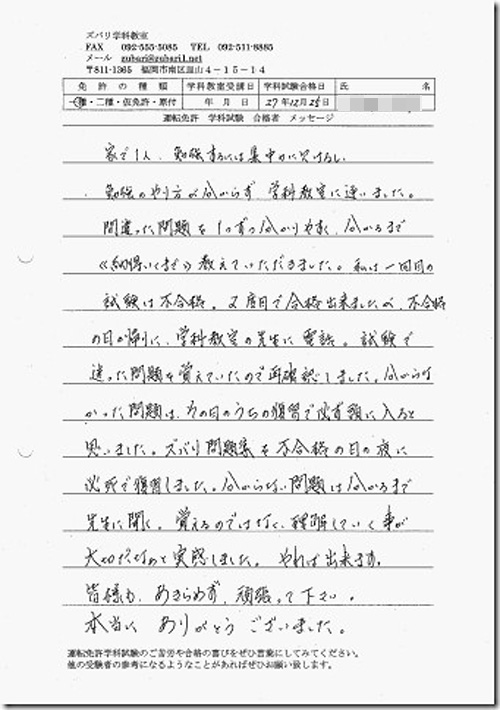 ズバリ学科教室
FAX 092-555-5085 TEL 092-511-8885
メール zubari@zubari1.net
〒811-1365 福岡市南区皿山4-15-14
免許の種類 学科教室受講日 学科試験合格日 氏名
一種・二種・仮免許・原付 年 月 日 27年12月25日
運転免許 学科試験 合格者 メッセージ
家で1人、勉強するには集中力に欠けるし、
勉強のやり方が分からず 学科教室に通いました。
間違った問題を1つずつ分かりやすく、分かるまで
《納得いくまで》教えていただきました。私は一回目の
試験は不合格。2度目で合格出来ましたが、不合格
の日の帰りに、学科教室の先生に電話。試験で
違った問題を覚えていたので再確認しました。分からな
かった問題は、その日のうちの復習で必ず頭に入ると
思いました。ズバリ問題集を不合格の日の夜に
必死で復習しました。分からない問題は分かるまで
先生に聞く。覚えるのではなく、理解していく事が
大切だなあと実感しました。やれば出来ます。
皆様も、あきらめず、頑張って下さい。
本当に ありがとう ございました。
運転免許学科試験のご苦労や合格の喜びをぜひ言葉にしてみてください。
他の受験者の参考になるようなことがあればぜひお願い致します。